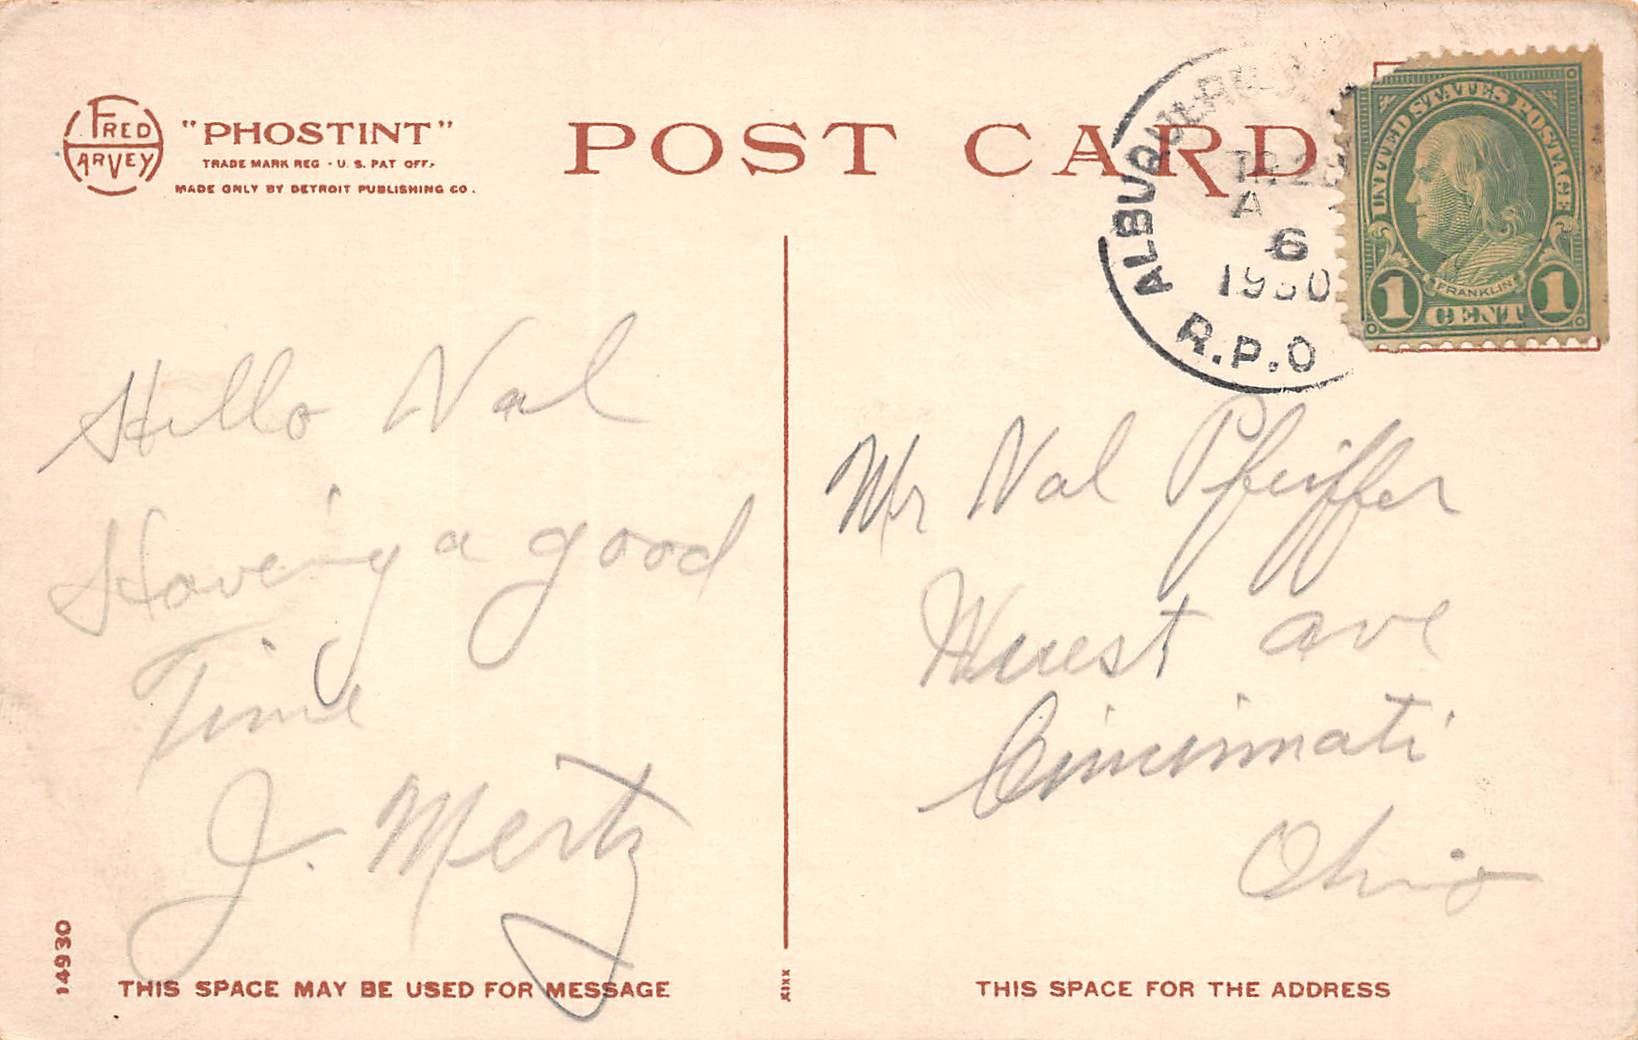 FRED
HARVEY
"PHOSTINT"
TRADE MARK REG - U. S. PAT OFF.
MADE ONLY BY DETROIT PUBLISHING CO.
POST CARD
ALBUQUER
TR 2
A
6
1930
R.P.O
UNITED STATES POSTAGE
FRANKLIN
1 CENT 1
Hello Val
Having a good
Time
J. Mertz
Mr Val Pfeiffer
Wuest ave
Cincinnati
Ohio
14930
THIS SPACE MAY BE USED FOR MESSAGE
THIS SPACE FOR THE ADDRESS